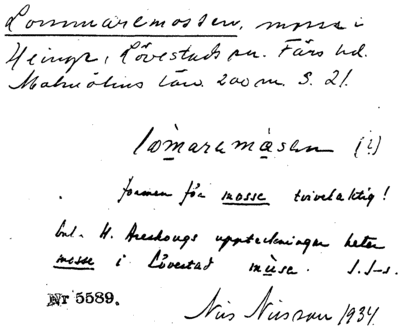 Lommaremossen, mosse i
Heinge, Lövestads sn. Färs hd.
Malmöhus län. 200 m. S. 21.
lòmaremàsen (!)
formen för mosse tvivelaktig!
enl. H. Areskougs uppteckningar heter
mosse i Lövestad mùse. I.I-s.
Nr 5589.
Nils Nilsson 1934